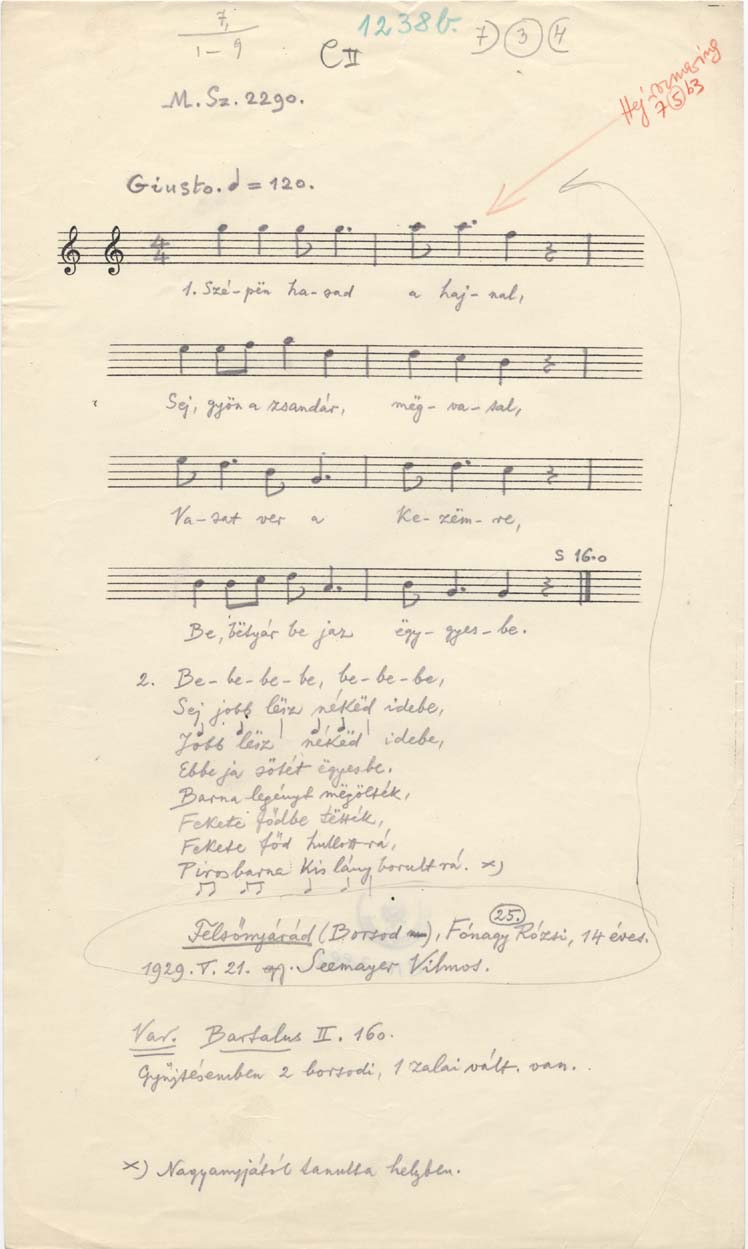 7,
1 – 9
C II
1238b.
7) (3) (4
7 (5) b3
M. Sz. 2290.
Giusto. = 120.
4
4
1. Szé-pën ha-sad a haj-nal,
Sej, gyön a zsandár, mëg-va-sal,
Va-sat ver a Ke-zëm-re,
S 16.0
Be, bëtyár be jaz ëgy-gyes-be.
2. Be-be-be-be, be-be-be,
Sej jobb lësz nékëd idebe,
Jobb lësz nékëd idebe,
Ebbe ja sötét ëgyesbe.
Barna legényt mëgölték,
Fekete födbe tëtték,
Fekete föd hullott rá,
Piros barna Kis lány borult rá. x)
25.
Felsőnyárád (Borsod m), Fónagy Rózsi, 14 éves.
1929. V. 21. gy. Seemayer Vilmos.
Var. Bartalus II. 160.
Gyűjtésemben 2 borsodi, 1 zalai vált. van.
x) Nagyanyjától tanulta helyben.